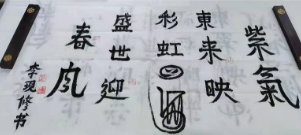 紫氣
東来映
彩虹
盛世迎
春風
李現修书